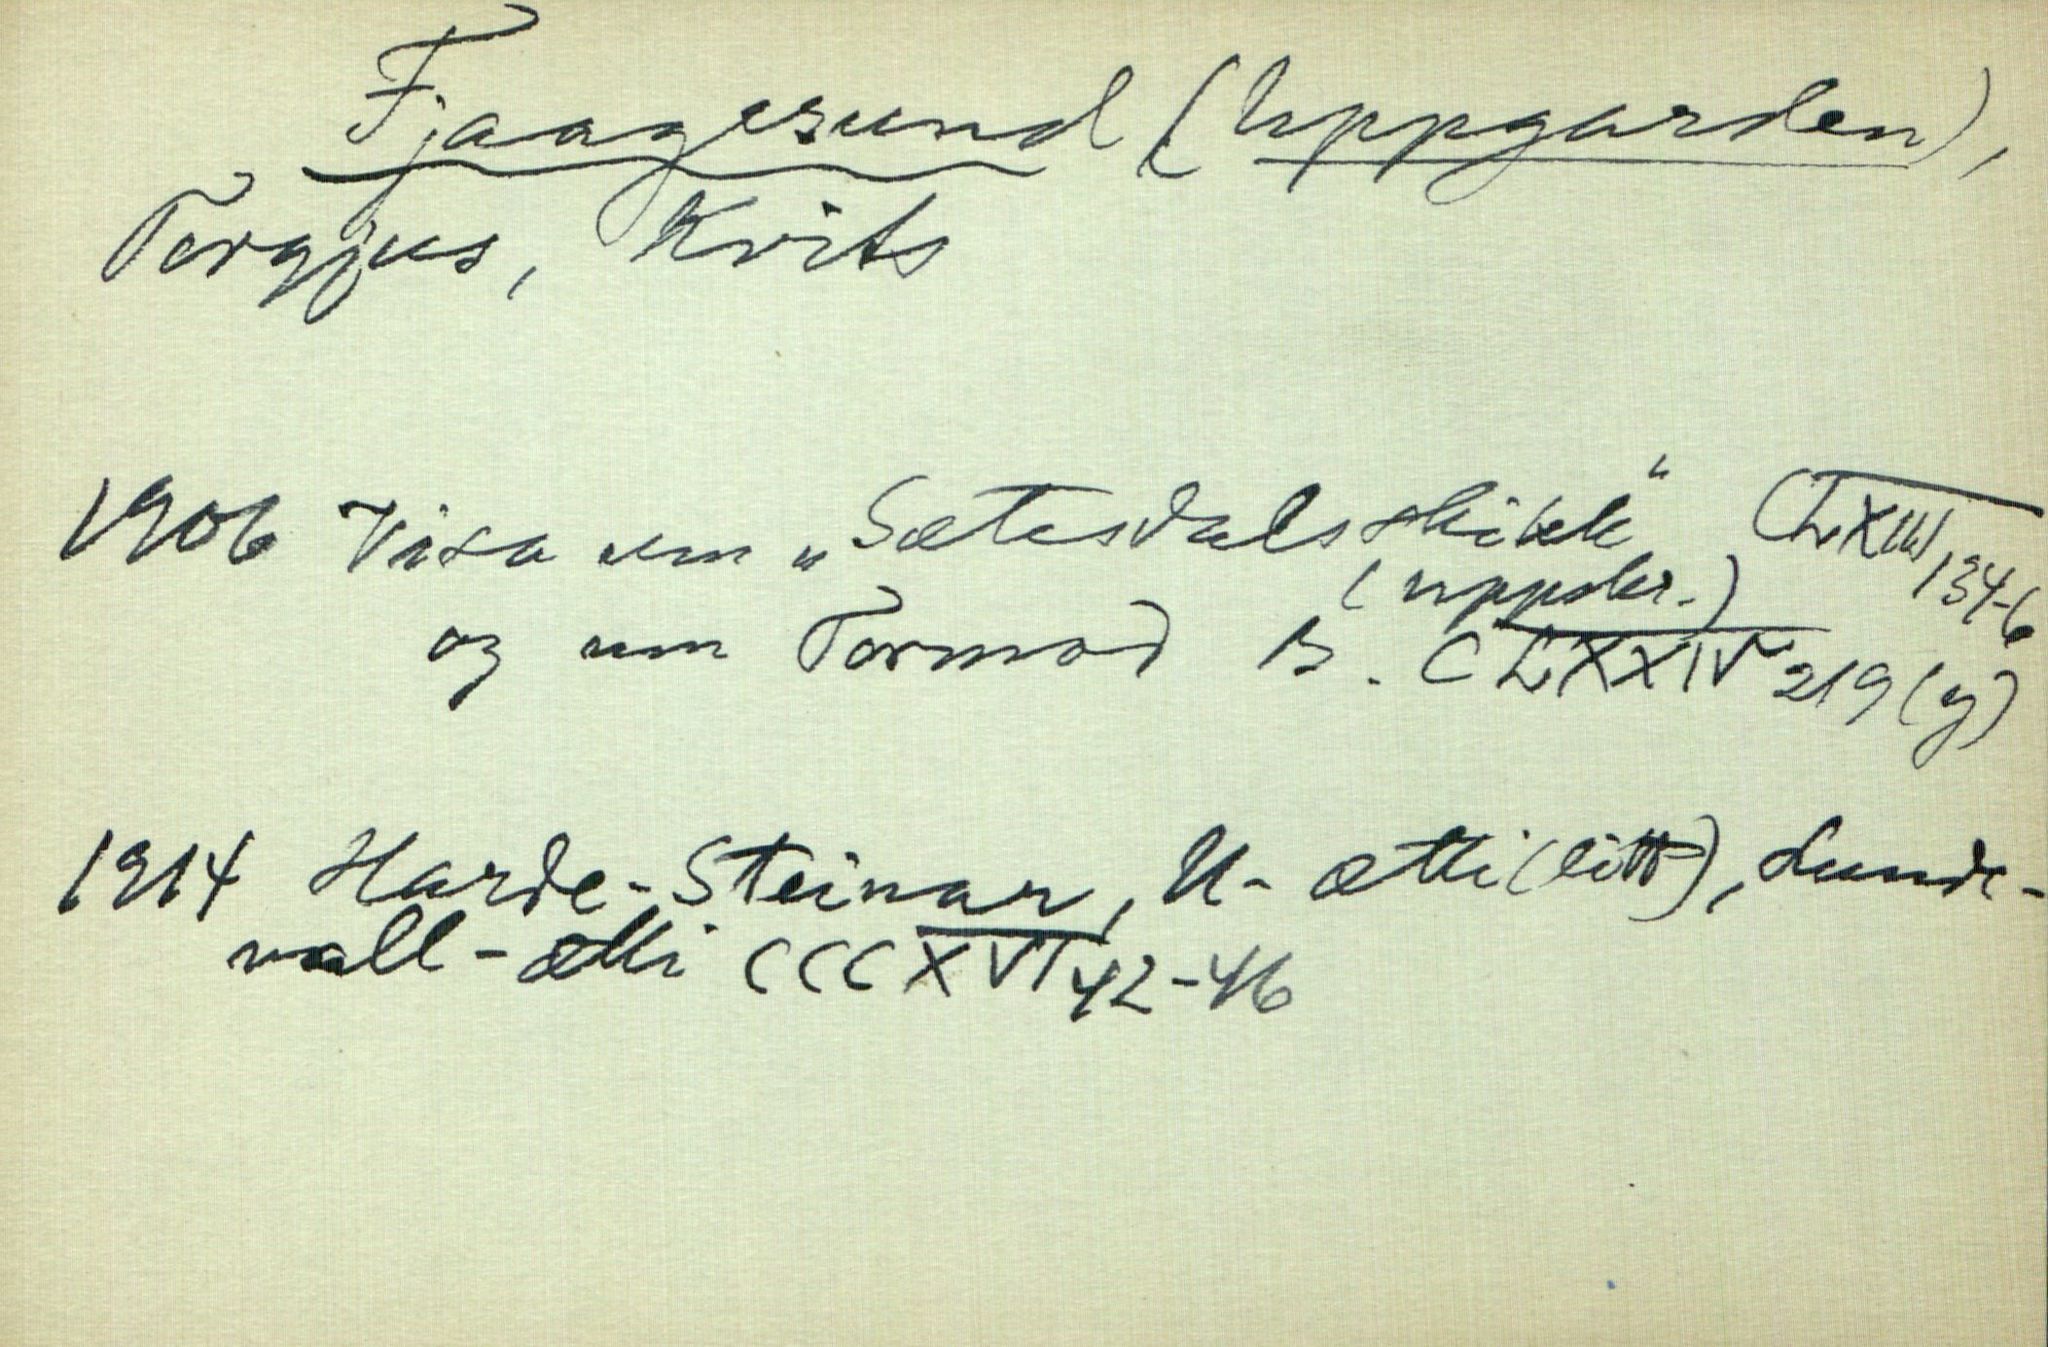 Fjaagesund (Uppgarden),
Torgjus, Kvits
1906 Visa um „Sætesdalsskikk“ CLXIII 134-6
(uppskr.)
og um Tormod B. CLXXIV 219 (y)
1914 Harde-Steinar, U-ætti (litt), Lunde-
vall-ætti CCCXVI 42-46